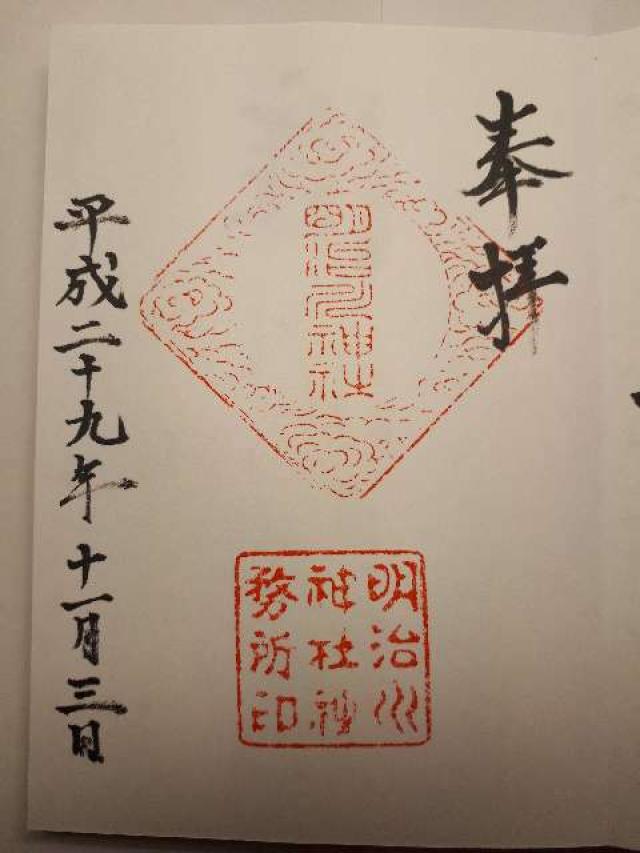 奉拝
明治川神社
明治川
神社社
務所印
平成二十九年十一月三日